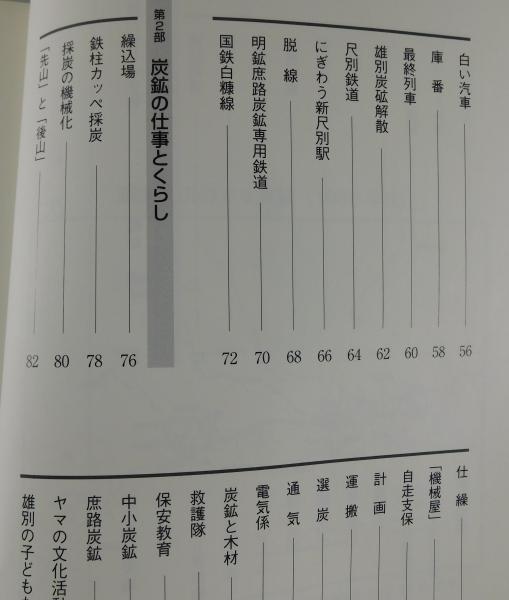 白い汽車 56
庫番 58
最終列車 60
雄別炭砿解散 62
尺別鉄道 64
にぎわう新尺別駅 66
脱線 68
明鉱庶路炭鉱専用鉄道 70
国鉄白糠線 72
第2部 炭鉱の仕事とくらし
繰込場 76
鉄柱カッペ採炭 78
採炭の機械化 80
「先山」と「後山」 82
仕繰
「機械屋」
自走支保
計画
運搬
選炭
通気
電気係
炭鉱と木材
救護隊
保安教育
中小炭鉱
庶路炭鉱
ヤマの文化活動
雄別の子ども